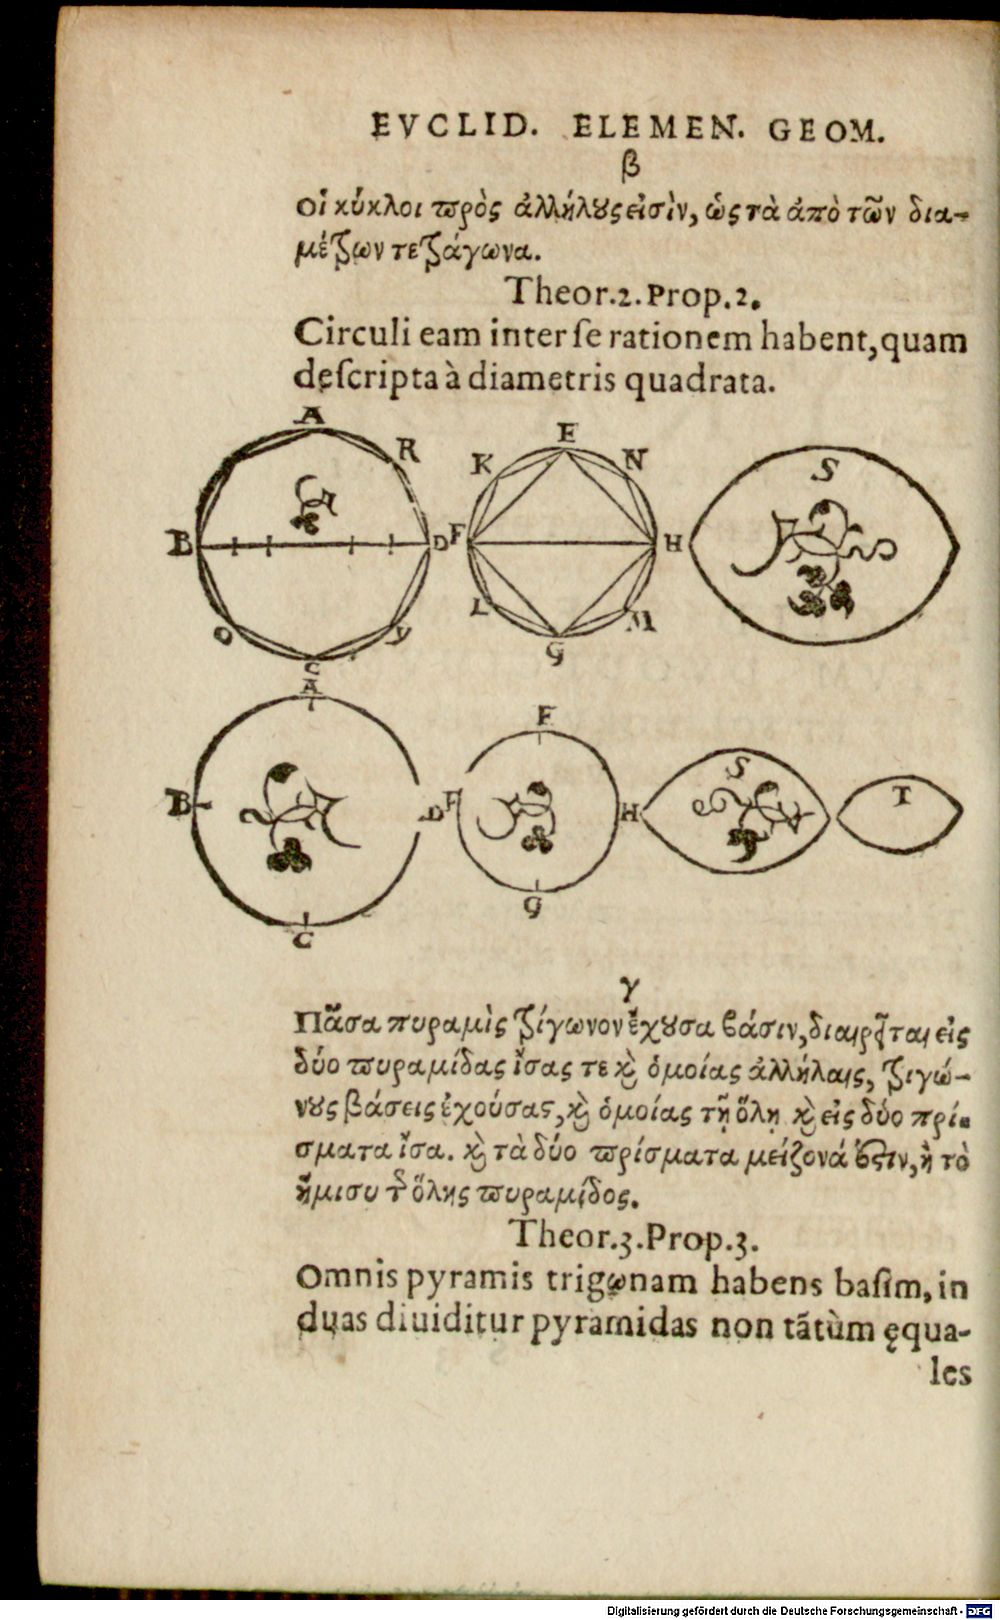 EVCLID. ELEMEN. GEOM.
β
οἱ κύκλοι πρὸς ἀλλήλȣς εἰσὶν, ὡς τὰ ἀπὸ τῶν δια-
μέτρων τετράγωνα.
Theor.2.Prop.2.
Circuli eam inter ſe rationem habent, quam
deſcripta à diametris quadrata.
A
R
B
D
O
C
V
E
K
N
F
H
L
M
G
S
A
B
D
C
F
F
H
G
S
T
γ
Πᾶσα πυραμὶς τρίγωνον ἔχȣσα βάσιν, διαιρεῖται εἰς
δύο πυραμίδας ἴσας τε ϗ ὁμοίας ἀλλήλαις, τριγώ-
νȣς βάσεις ἐχούσας, ϗ ὁμοίας τῇ ὅλῃ ϗ εἰς δύο πρί-
σματα ἴσα. ϗ τὰ δύο πρίσματα μείζονά ἐςιν, ἢ τὸ
ἥμισυ τῆς ὅλης πυραμίδος.
Theor.3.Prop.3.
Omnis pyramis trigωnam habens baſim, in
duas diuiditur pyramidas non tãtùm ęqua-
les
Digitalisierung gefördert durch die Deutsche Forschungsgemeinschaft - DFG